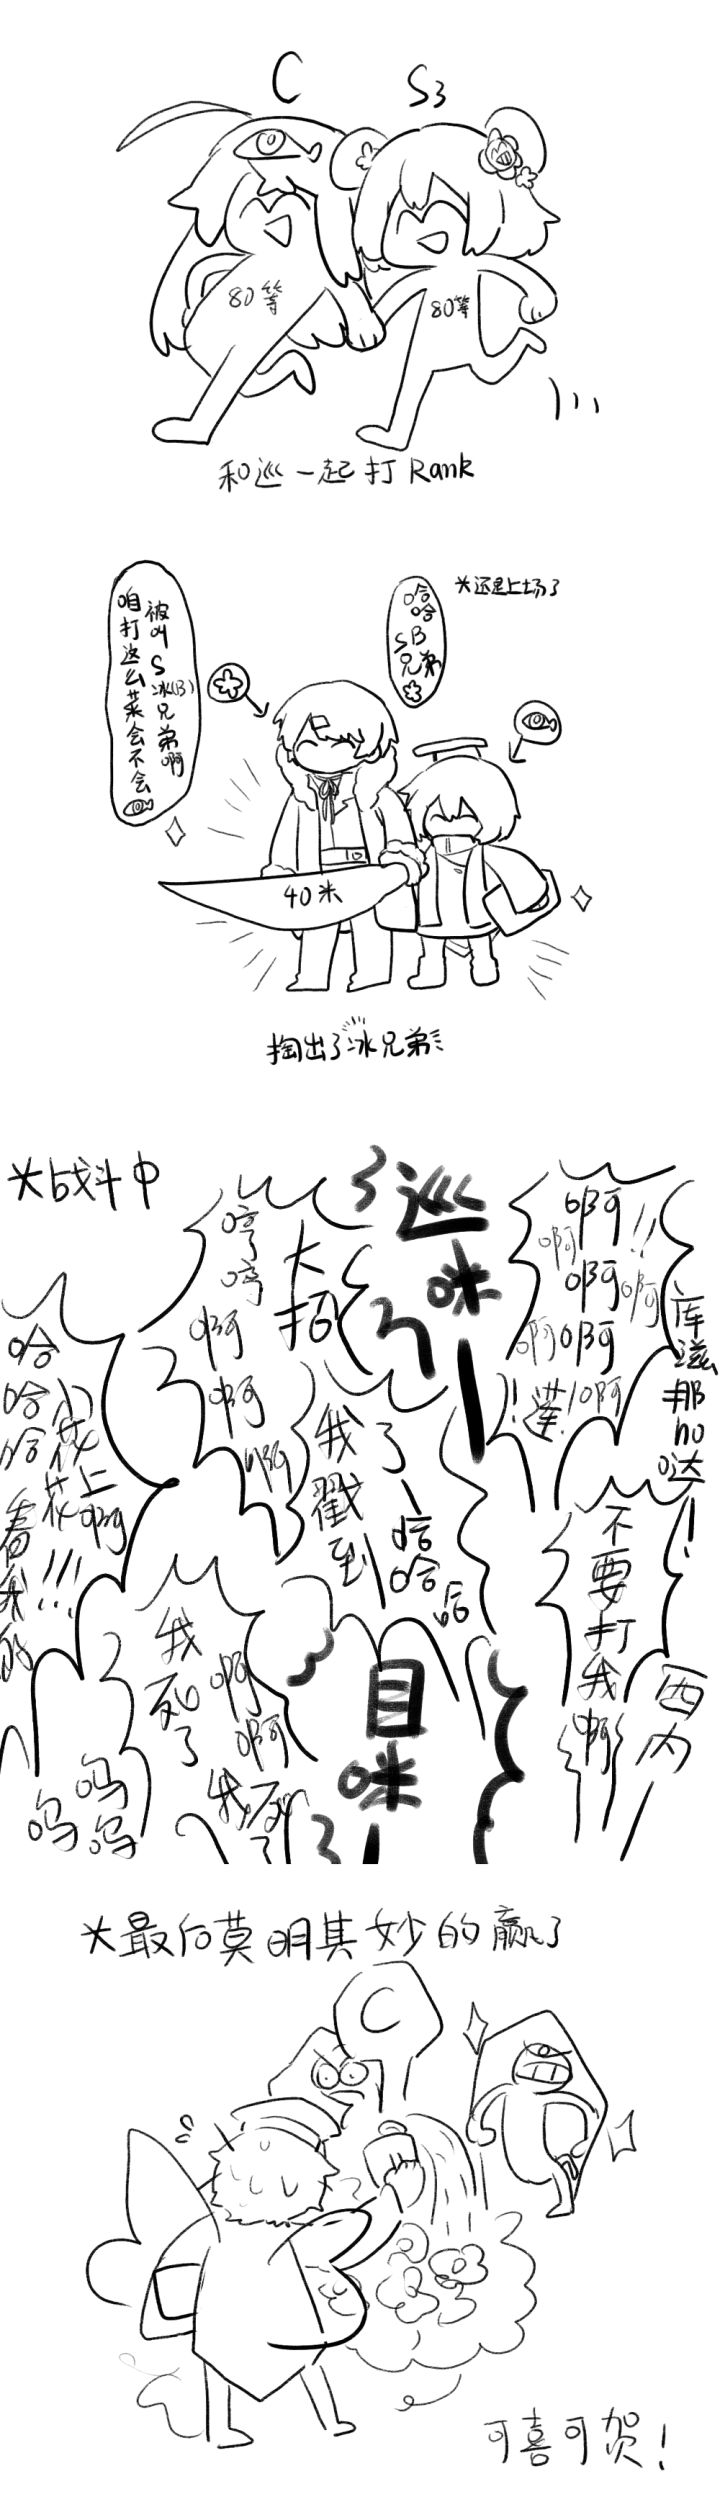 C
S3
80等
80等
和巡一起打Rank
*还是上场了
哈哈
SB
兄弟
被叫S冰(B)兄弟啊
咱打这么菜会不会
40米
10
掏出了冰兄弟
*战斗中
啊啊啊
啊啊啊啊
!!
库滋那hο哒!
巡咪!
大招
哼哼啊啊啊
哈哈哈
小花花上啊!!!
看我的
不要打我啊
西内!
我戳到了!
哈哈哈
目咪!
我死了
啊啊我死了
呜呜呜
*最后莫明其妙的赢了
C
可喜可贺!